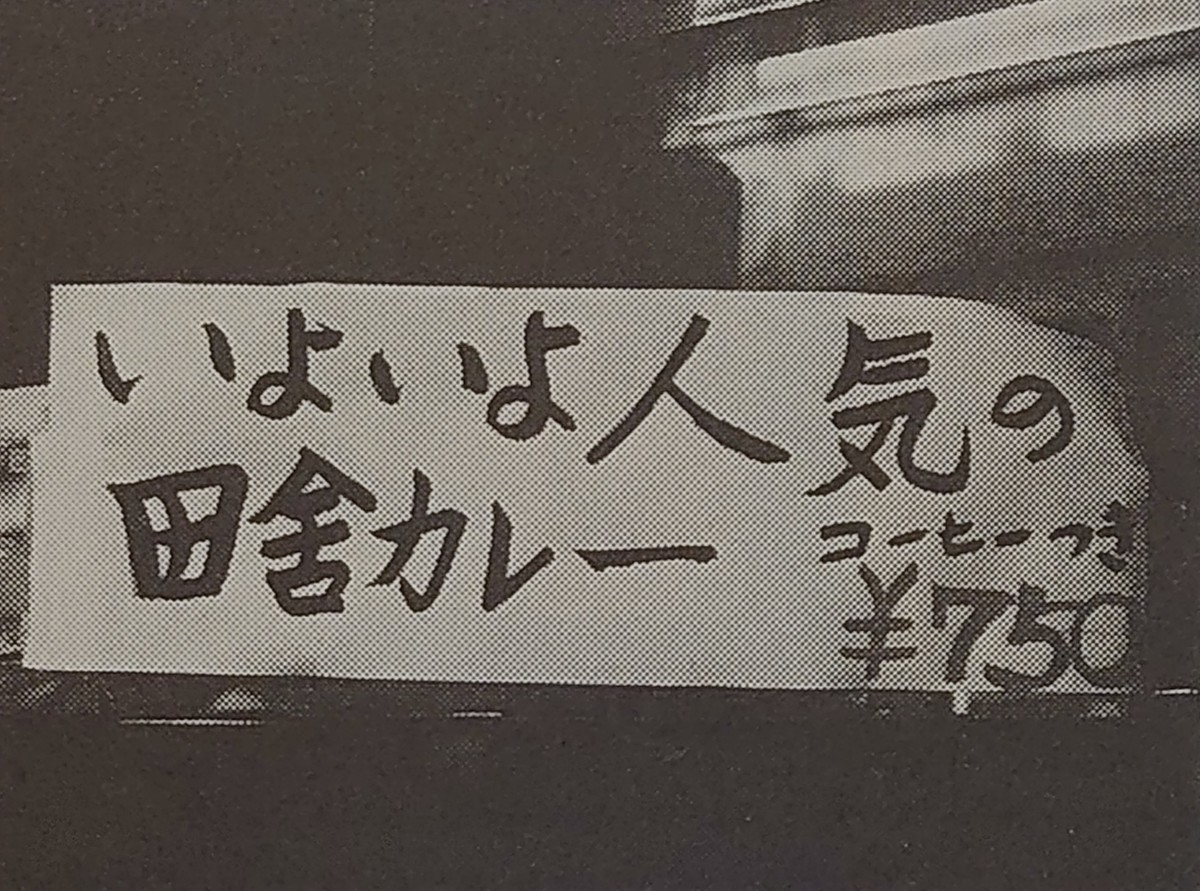 いよいよ人気の
田舎カレー
コーヒーつき
¥750